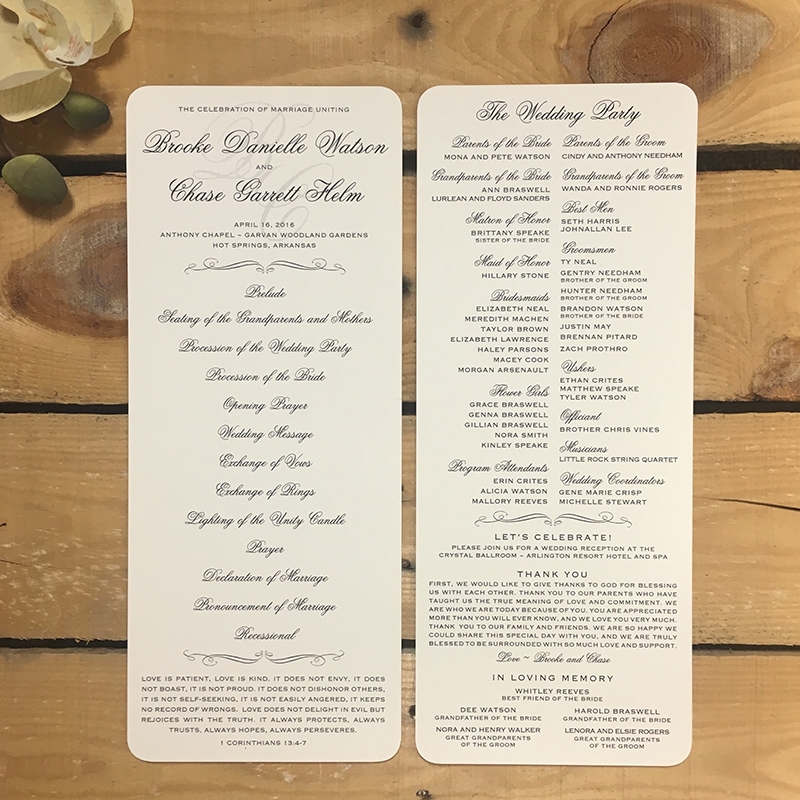 THE CELEBRATION OF MARRIAGE UNITING
Brooke Danielle Watson
AND
Chase Garrett Helm
APRIL 16, 2016
ANTHONY CHAPEL ~ GARVAN WOODLAND GARDENS
HOT SPRINGS, ARKANSAS
Prelude
Seating of the Grandparents and Mothers
Procession of the Wedding Party
Procession of the Bride
Opening Prayer
Wedding Message
Exchange of Vows
Exchange of Rings
Lighting of the Unity Candle
Prayer
Declaration of Marriage
Pronouncement of Marriage
Recessional
LOVE IS PATIENT, LOVE IS KIND. IT DOES NOT ENVY, IT DOES
NOT BOAST, IT IS NOT PROUD. IT DOES NOT DISHONOR OTHERS,
IT IS NOT SELF-SEEKING, IT IS NOT EASILY ANGERED, IT KEEPS
NO RECORD OF WRONGS. LOVE DOES NOT DELIGHT IN EVIL BUT
REJOICES WITH THE TRUTH. IT ALWAYS PROTECTS, ALWAYS
TRUSTS, ALWAYS HOPES, ALWAYS PERSEVERES.
1 CORINTHIANS 13:4-7
The Wedding Party
Parents of the Bride
MONA AND PETE WATSON
Grandparents of the Bride
ANN BRASWELL
LURLEAN AND FLOYD SANDERS
Matron of Honor
BRITTANY SPEAKE
SISTER OF THE BRIDE
Maid of Honor
HILLARY STONE
Bridesmaids
ELIZABETH NEAL
MEREDITH MACHEN
TAYLOR BROWN
ELIZABETH LAWRENCE
HALEY PARSONS
MACEY COOK
MORGAN ARSENAULT
Flower Girls
GRACE BRASWELL
GENNA BRASWELL
GILLIAN BRASWELL
NORA SMITH
KINLEY SPEAKE
Program Attendants
ERIN CRITES
ALICIA WATSON
MALLORY REEVES
Parents of the Groom
CINDY AND ANTHONY NEEDHAM
Grandparents of the Groom
WANDA AND RONNIE ROGERS
Best Men
SETH HARRIS
JOHNALLAN LEE
Groomsmen
TY NEAL
GENTRY NEEDHAM
BROTHER OF THE GROOM
HUNTER NEEDHAM
BROTHER OF THE GROOM
BRANDON WATSON
BROTHER OF THE BRIDE
JUSTIN MAY
BRENNAN PITARD
ZACH PROTHRO
Ushers
ETHAN CRITES
MATTHEW SPEAKE
TYLER WATSON
Officiant
BROTHER CHRIS VINES
Musicians
LITTLE ROCK STRING QUARTET
Wedding Coordinators
GENE MARIE CRISP
MICHELLE STEWART
LET'S CELEBRATE!
PLEASE JOIN US FOR A WEDDING RECEPTION AT THE
CRYSTAL BALLROOM ~ ARLINGTON RESORT HOTEL AND SPA
THANK YOU
FIRST, WE WOULD LIKE TO GIVE THANKS TO GOD FOR BLESSING
US WITH EACH OTHER. THANK YOU TO OUR PARENTS WHO HAVE
TAUGHT US THE TRUE MEANING OF LOVE AND COMMITMENT. WE
ARE WHO WE ARE TODAY BECAUSE OF YOU. YOU ARE APPRECIATED
MORE THAN YOU WILL EVER KNOW, AND WE LOVE YOU VERY MUCH.
THANK YOU TO OUR FAMILY AND FRIENDS. WE ARE SO HAPPY WE
COULD SHARE THIS SPECIAL DAY WITH YOU, AND WE ARE TRULY
BLESSED TO BE SURROUNDED WITH SO MUCH LOVE AND SUPPORT.
Love ~ Brooke and Chase
IN LOVING MEMORY
WHITLEY REEVES
BEST FRIEND OF THE BRIDE
DEE WATSON
GRANDFATHER OF THE BRIDE
HAROLD BRASWELL
GRANDFATHER OF THE BRIDE
NORA AND HENRY WALKER
GREAT GRANDPARENTS
OF THE GROOM
LENORA AND ELSIE ROGERS
GREAT GRANDPARENTS
OF THE GROOM